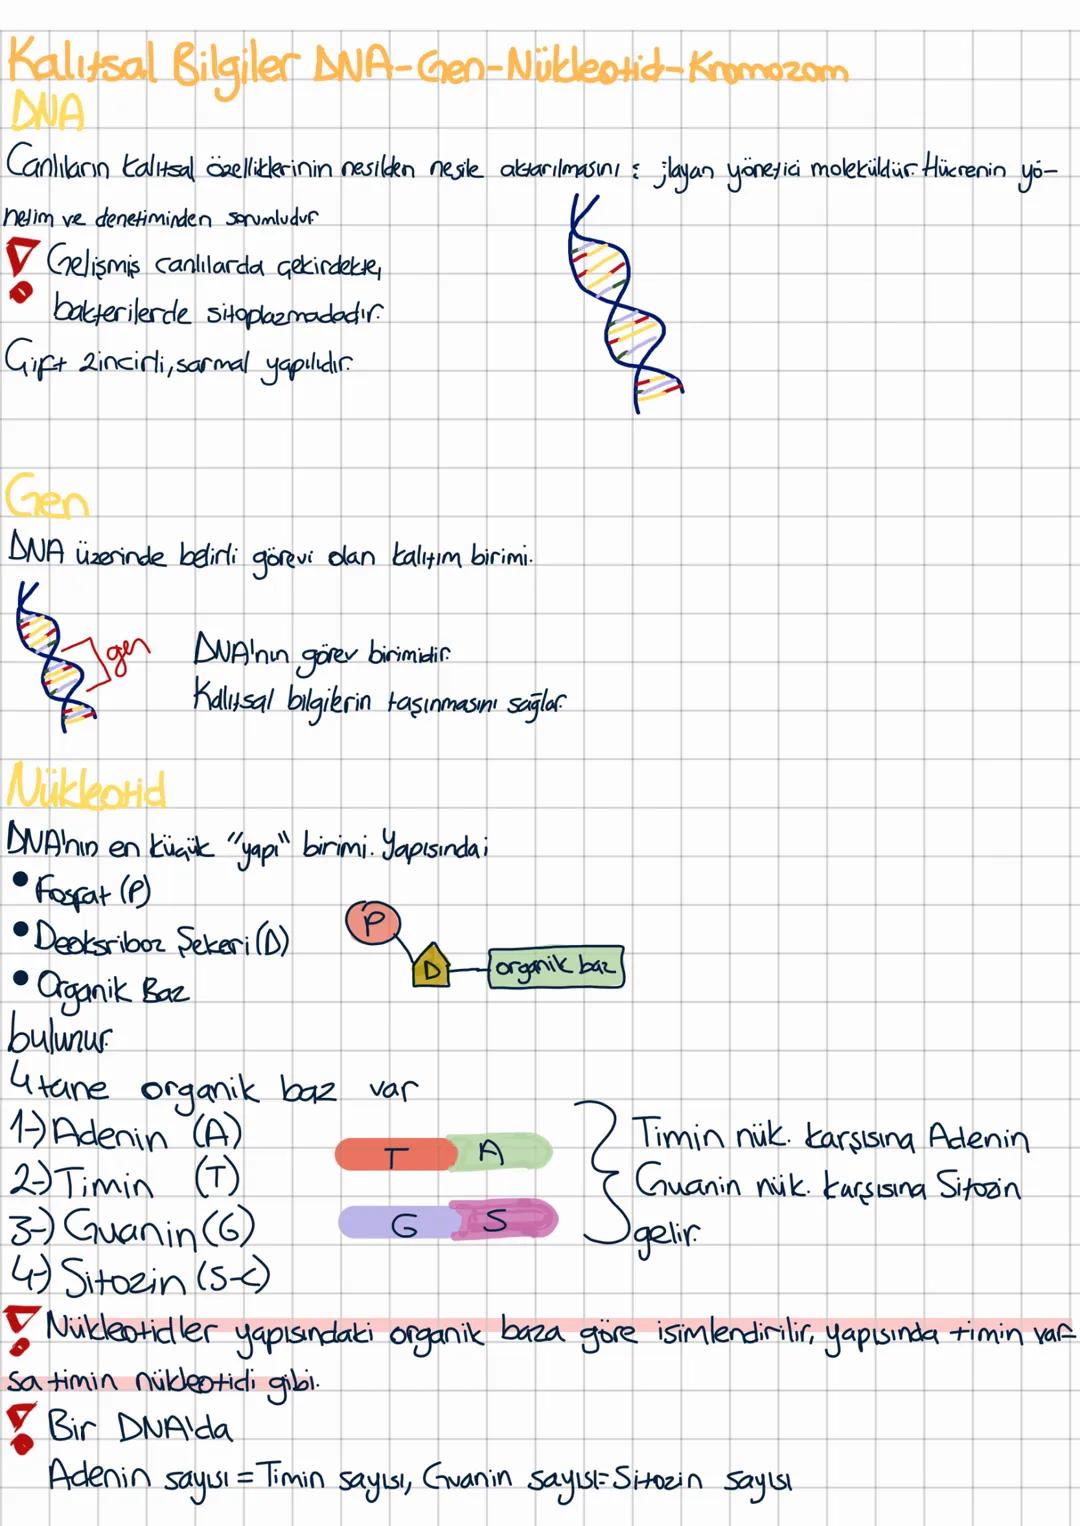 Kalıtsal Bilgiler DNA-Gen-Nükleotid-Kromozom
DNA
Canlıların kalıtsal özelliklerinin nesilden nesile aktarılmasını layan yönetici moleküldür. Hücrenin yö-
netim ve denetiminden sorumludur
Gelişmiş canlılarda çekirdekte,
bakterilerde sitoplazmadadır.
Çift zincirli, sarmal yapılıdır.
Gen
DNA üzerinde belirli görevi olan kalıtım birimi.
gen
DNA'nın görev birimidir.
Kalıtsal bilgilerin taşınmasını sağlar.
Nükleotid
DNA'nın en küçük "yapı" birimi. Yapısında;
• Fosfat (P)
• Deoksriboz Şekeri (D)
• Organik Baz
P
D
organik baz
bulunur.
4 tane organik baz var
1-) Adenin (A)
2-) Timin (T)
3-) Guanin (G)
4-) Sitozin (S-C)
T A
G S
Timin nük. karşısına Adenin
Guanin nük. karşısına Sitozin
gelir.
Nükleotidler yapısındaki organik baza göre isimlendirilir, yapısında timin var-
sa timin nükleotidi gibi.
Bir DNA'da
Adenin sayısı = Timin sayısı, Guanin sayısı = Sitozin sayısı